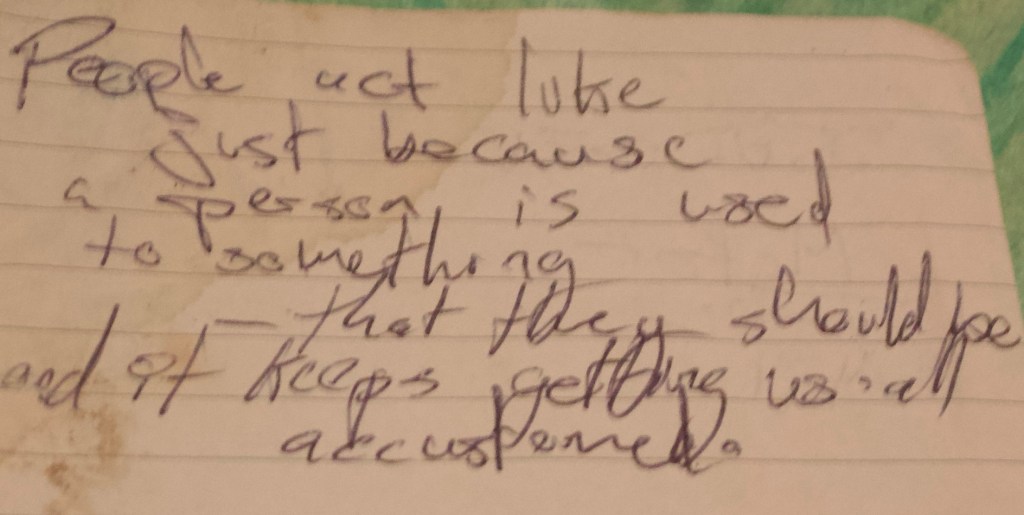 People act like
just because
a person is used
to something
— that they should be
and it keeps getting us all
accustomed.